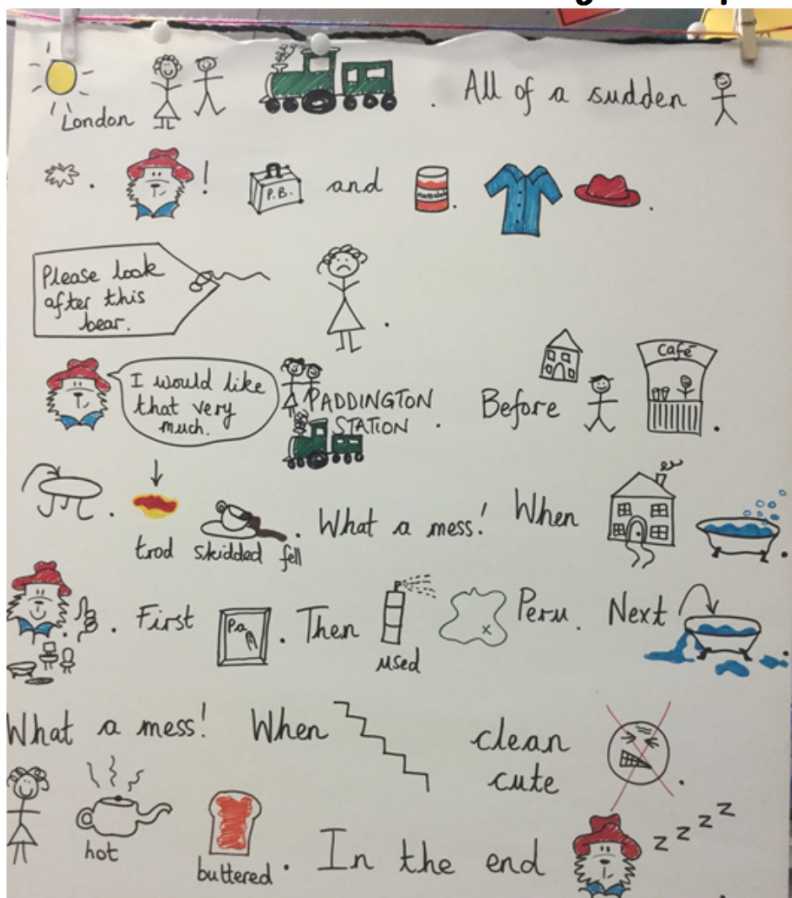 London
All of a sudden
P.B.
and
Please look
after this
bear.
I would like
that very
much.
PADDINGTON
STATION
Before
Café
trod skidded fell
What a mess! When
First
Pa
Then
used
Peru. Next
What a mess! When
clean
cute
hot
buttered.
In the end
z z z z